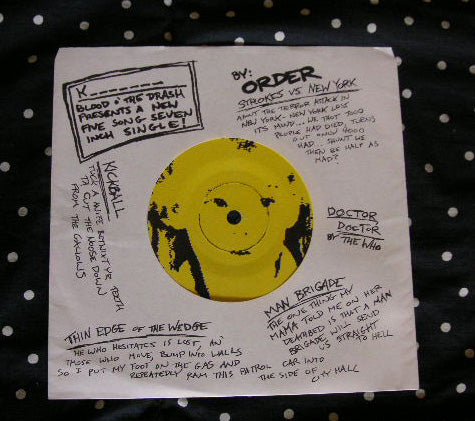 K
BLOOD O' THE DRASH
PRESENTS A NEW
FIVE SONG SEVEN
INCH SINGLE!
BY: ORDER
STROKES VS NEW YORK
ABOUT THE TERROR ATTACK IN
NEW YORK- NEW YORK LOST
ITS MIND... WE THOT 7000
PEOPLE HAD DIED, TURNS
OUT ONLY 4000
HAD. SHDN'T WE
THEN BE HALF AS
MAD?
KICKBALL
TUCK A KNIFE BETWIXT YR TEETH
TO CUT THE NOOSE DOWN
FROM THE GALLOWS
DOCTOR,
DOCTOR
BY THE WHO
MAN BRIGADE
THE ONE THING MY
MAMA TOLD ME ON HER
DEATHBED IS THAT A MAN
BRIGADE WILL SEND
US STRAIGHT
TO HELL
THIN EDGE OF THE WEDGE
HE WHO HESITATES IS LOST, AN
THOSE WHO MOVE, BUMP INTO WALLS
SO I PUT MY FOOT ON THE GAS AND
REPEATEDLY RAM THIS PATROL CAR INTO
THE SIDE OF
CITY HALL